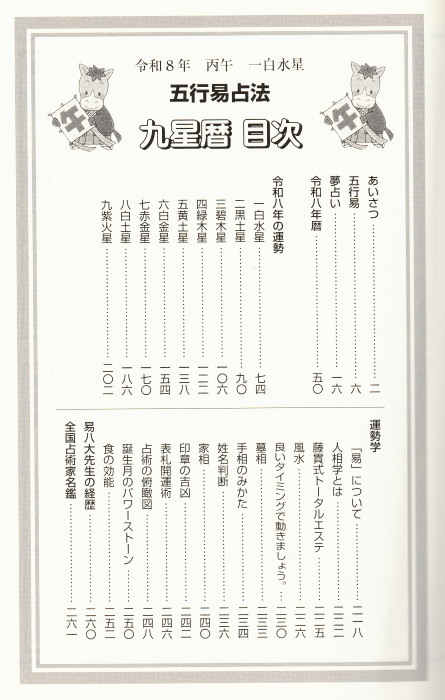 令和８年　丙午　一白水星
五行易占法
九星暦 目次
午
午
あいさつ……二
五行易……六
夢占い……一六
令和八年暦……五〇
令和八年の運勢
一白水星……七四
二黒土星……九〇
三碧木星……一〇六
四緑木星……一二二
五黄土星……一三八
六白金星……一五四
七赤金星……一七〇
八白土星……一八六
九紫火星……二〇二
運勢学
「易」について……二一八
人相学とは……二二二
藤貫式トータルエステ……二二五
風水……二二六
良いタイミングで動きましょう。……二三〇
墓相……二三三
手相のみかた……二三四
姓名判断……二三六
家相……二四〇
印章の吉凶……二四二
表札開運術……二四六
占術の俯瞰図……二四八
誕生月のパワーストーン……二五〇
食の効能……二五二
易八大先生の経歴……二六〇
全国占術家名鑑……二六一